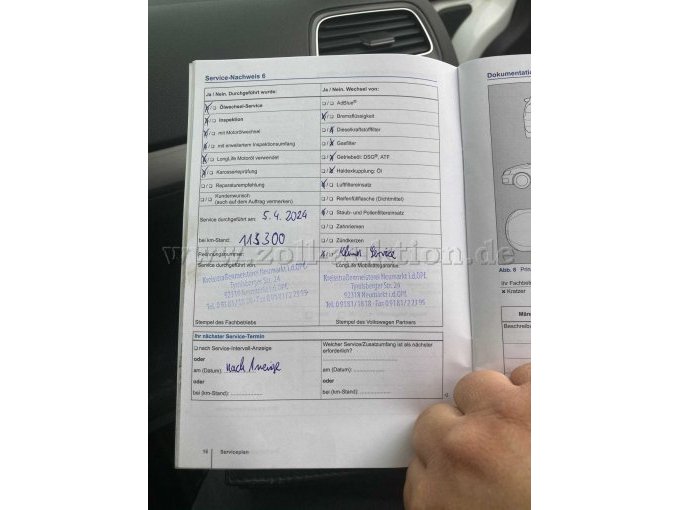 Service-Nachweis 6
Ja / Nein. Durchgeführt wurde:
Ölwechsel-Service
Inspektion
mit Motorölwechsel
mit erweitertem Inspektionsumfang
LongLife Motoröl verwendet
Karosserieprüfung
Reparaturempfehlung
Kundenwunsch
(auch auf dem Auftrag vermerken)
Service durchgeführt am: 5.4.2024
bei km-Stand: 113300
Rechnungsnummer:
Service durchgeführt von:
Kreisstraßenmeisterei Neumarkt i.d.OPf.
Tyrolsberger Str. 2a
92318 Neumarkt i.d.OPf.
Stempel des Fachbetriebs
Ja / Nein. Wechsel von:
AdBlue®
Bremsflüssigkeit
Dieselkraftstofffilter
Gasfilter
Getriebeöl: DSG®, ATF
Haldexkupplung: Öl
Luftfiltereinsatz
Reifenfüllflasche (Dichtmittel)
Staub- und Pollenfiltereinsatz
Zahnriemen
Zündkerzen
Klima Service
LongLife Mobilitätsgarantie
Kreisstraßenmeisterei Neumarkt i.d.OPf.
Tyrolsberger Str. 2a
92318 Neumarkt i.d.OPf.
Stempel des Volkswagen Partners
Ihr nächster Service-Termin
nach Service-Intervall-Anzeige
oder
am (Datum): nach Anzeige
oder
bei (km-Stand):
Welcher Service/Zusatzumfang ist als nächster
erforderlich?
am (Datum):
oder
bei (km-Stand):
16 Serviceplan
Dokumentation
Abb. 6
Ihr Fachbetrieb
× Kratzer
www.zoll-auktion.de